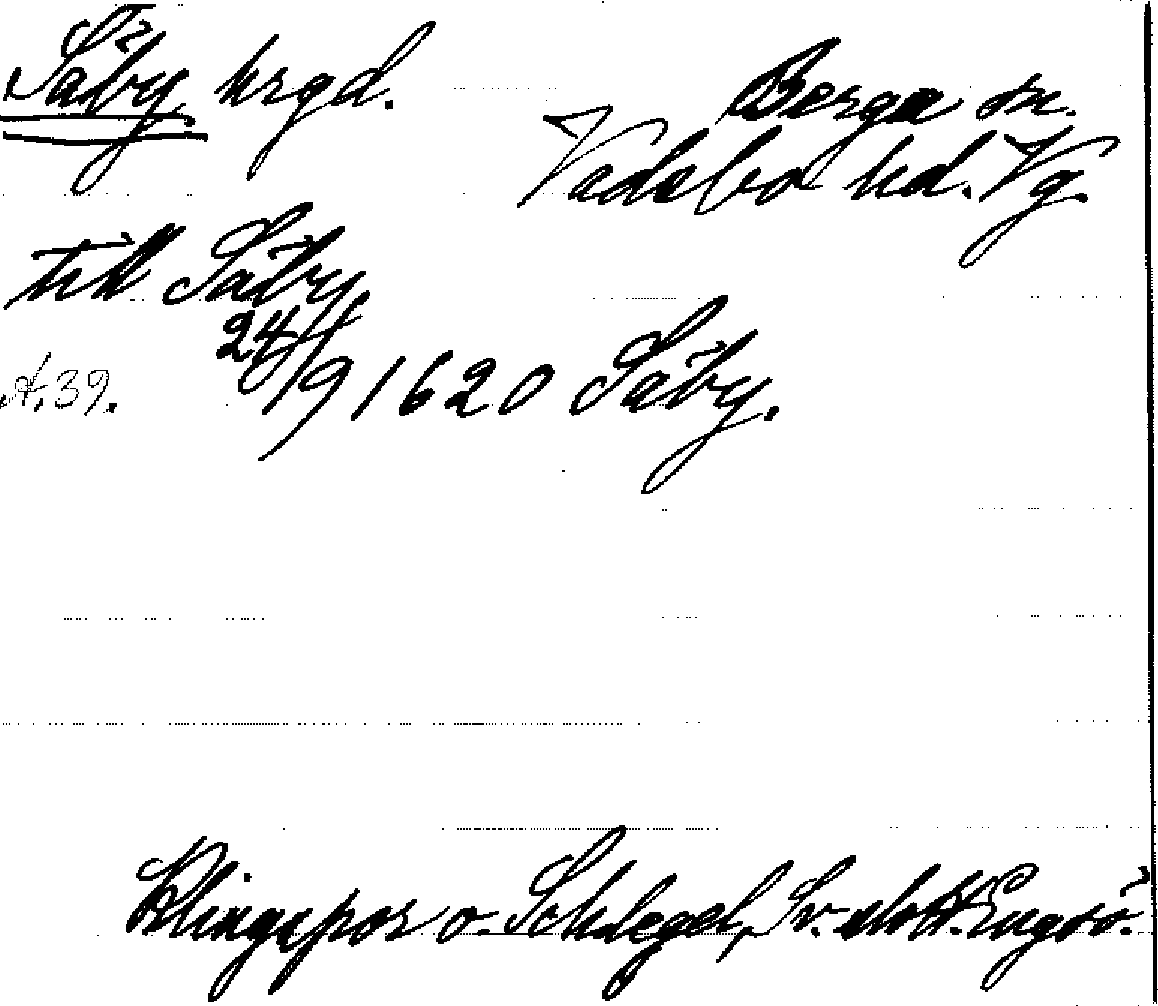 Säby hrgd.
Berga sn.
Vadsbo hd. Vg.
till Säby
24/9 1620 Säby.
A. 39.
Klingspor o. Schlegel, Sv. slott. Engsö.